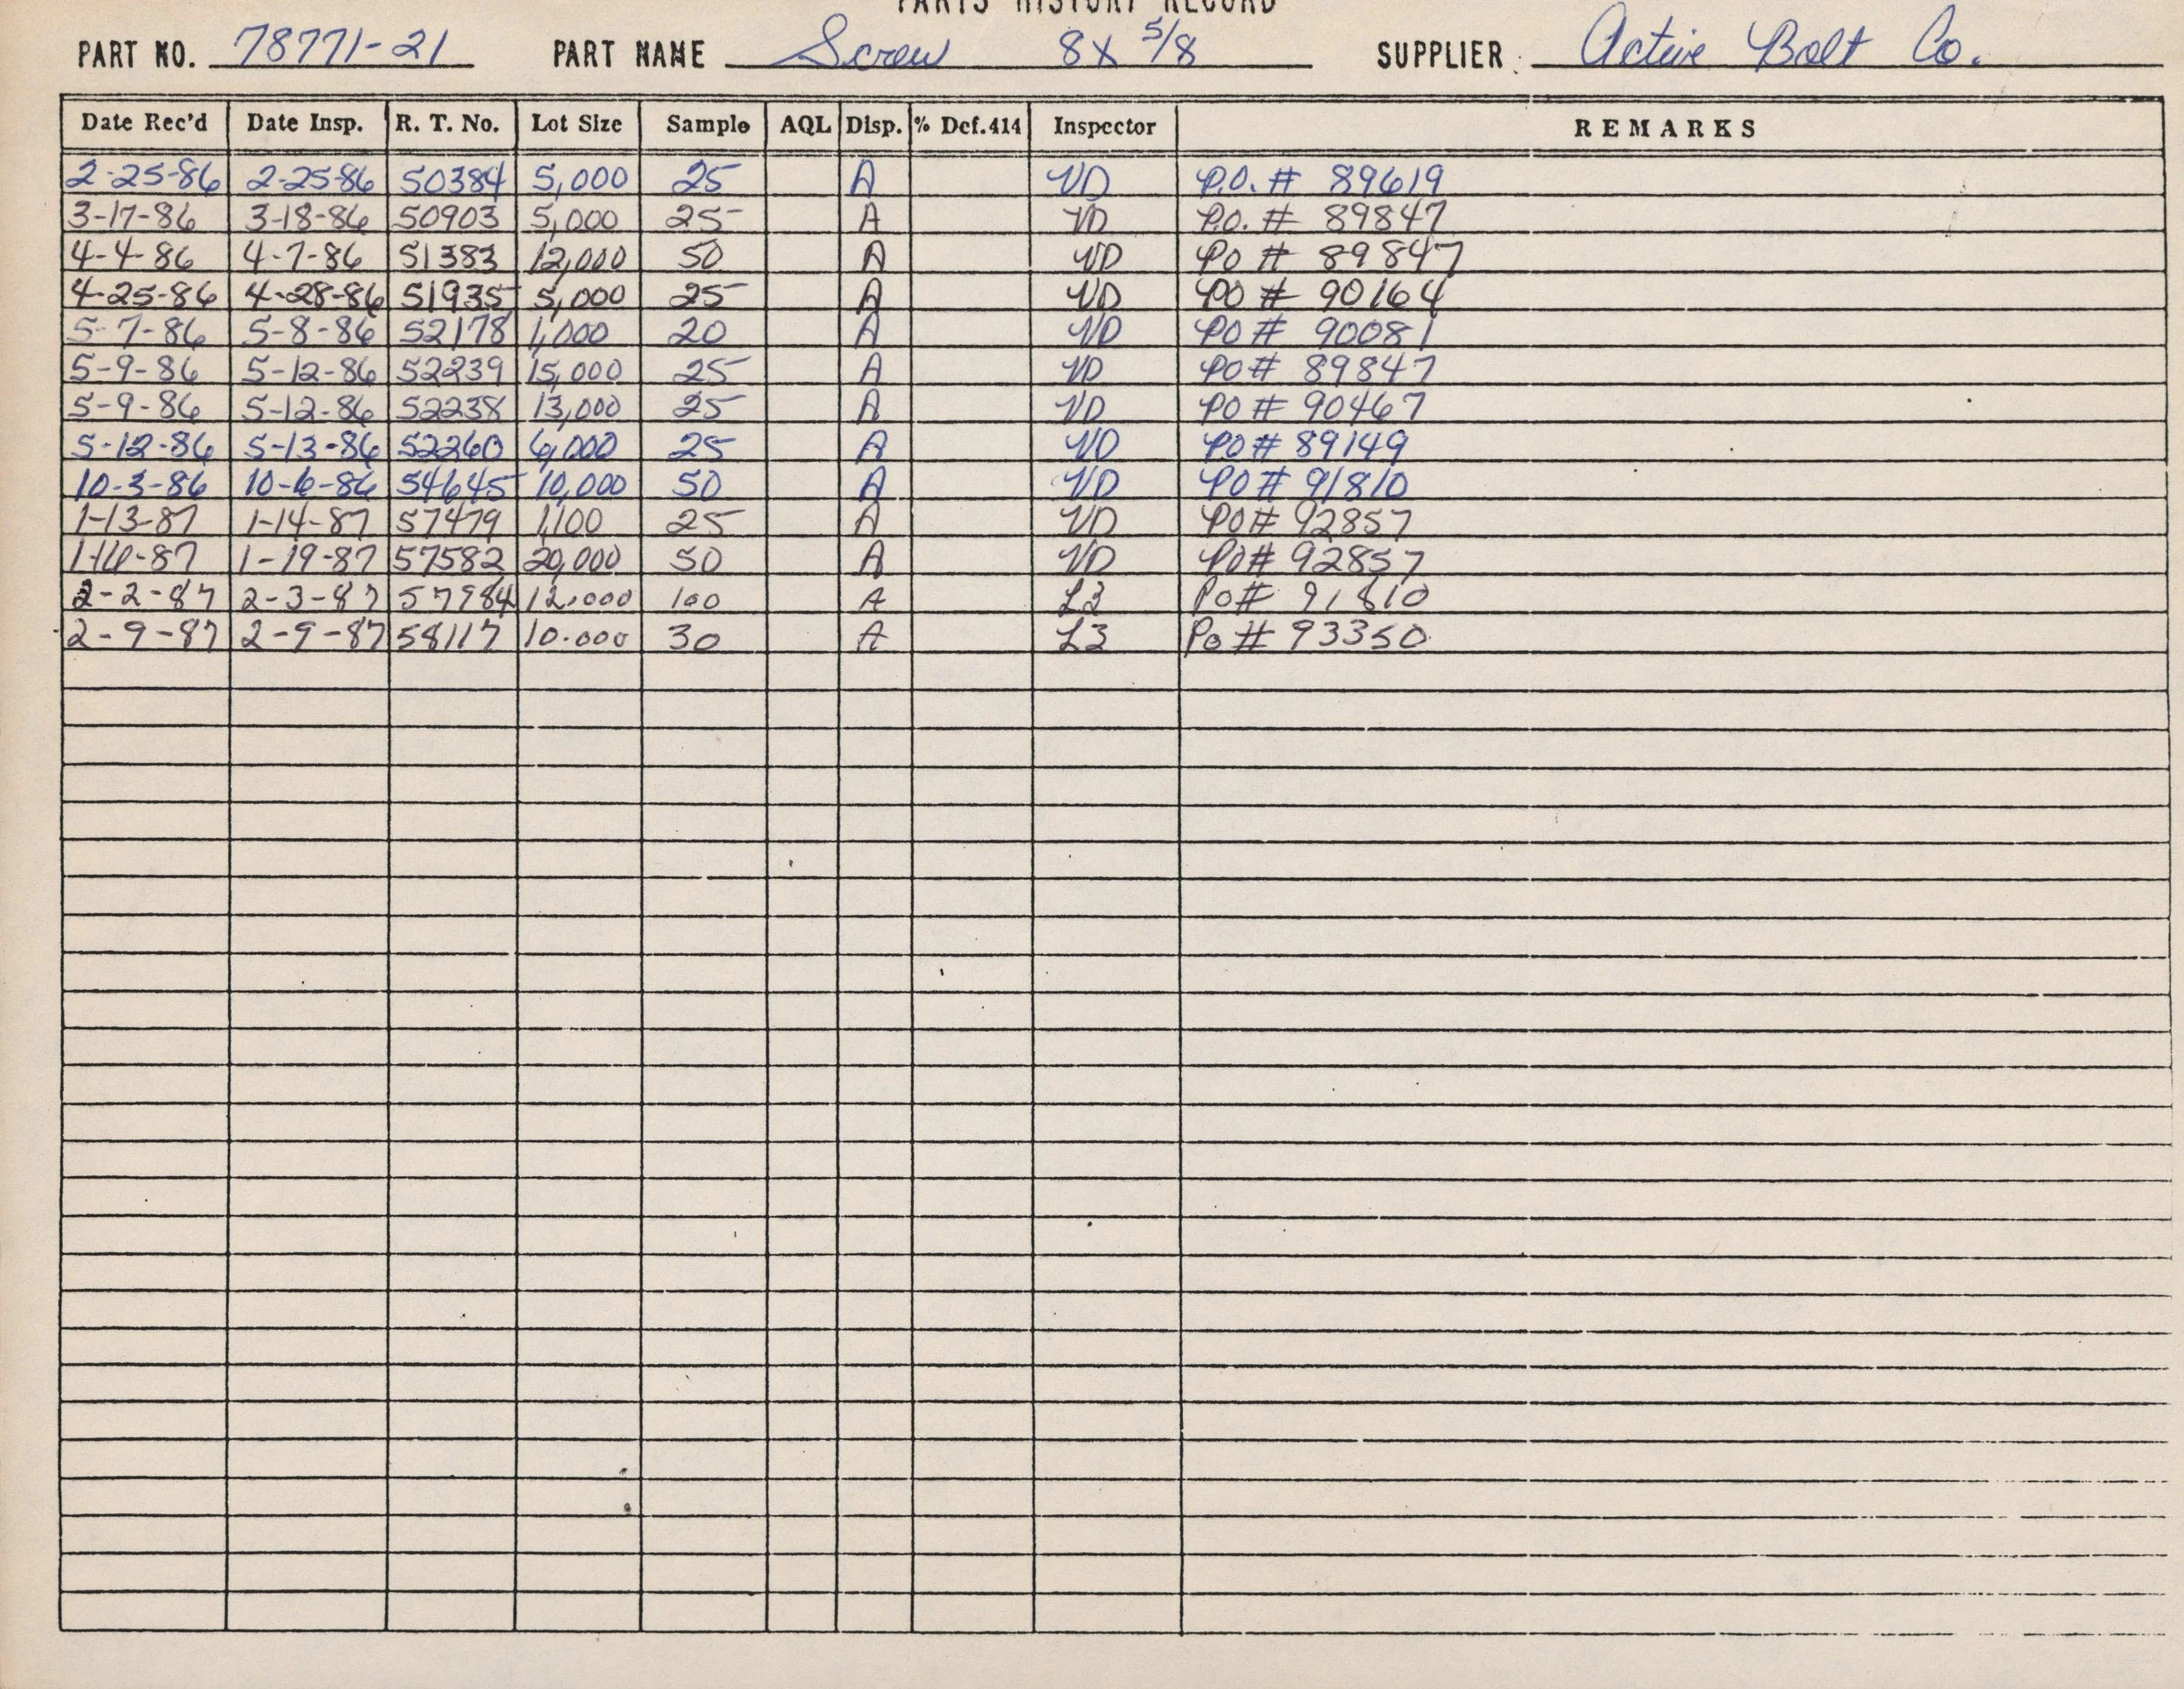 PARTS HISTORY RECORD
PART NO. 78771-21 PART NAME Screw 8X 5/8 SUPPLIER Active Bolt Co.
Date Rec'd Date Insp. R. T. No. Lot Size Sample AQL Disp. % Def.414 Inspector REMARKS
2-25-86 2-25-86 50384 5,000 25 A VD P.O. # 89619
3-17-86 3-18-86 50903 5,000 25 A VD P.O. # 89847
4-4-86 4-7-86 51383 12,000 50 A VD PO # 89847
4-25-86 4-28-86 51935 5,000 25 A VD PO # 90164
5-7-86 5-8-86 52178 1,000 20 A VD PO # 90081
5-9-86 5-12-86 52239 15,000 25 A VD PO # 89847
5-9-86 5-12-86 52238 13,000 25 A VD PO # 90467
5-12-86 5-13-86 52260 6,000 25 A VD PO # 89149
10-3-86 10-6-86 54645 10,000 50 A VD PO # 91810
1-13-87 1-14-87 57479 1,100 25 A VD PO# 92857
1-16-87 1-19-87 57582 20,000 50 A VD PO# 92857
2-2-87 2-3-87 57984 12.000 100 A L3 Po# 91810
2-9-87 2-9-87 58117 10.000 30 A L3 Po # 93350